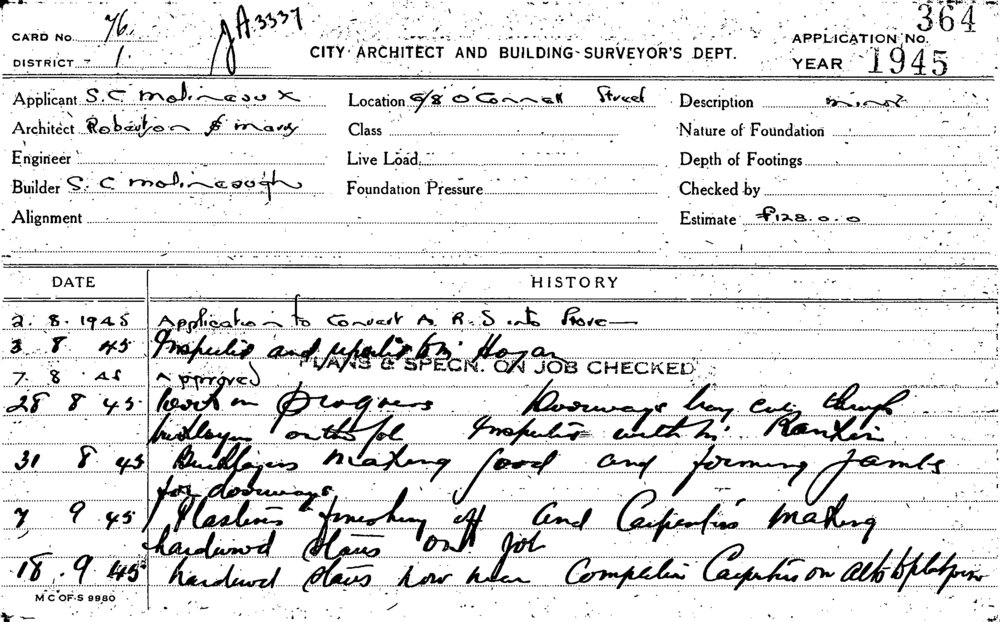 CARD No. 76.
JA.3337
364
DISTRICT - 1.
CITY ARCHITECT AND BUILDING SURVEYOR'S DEPT.
APPLICATION No.
YEAR 1945
Applicant S.C Molineaux
Location 6/8 O'Connell Street
Description minor
Architect Robertson & Marks
Class
Nature of Foundation
Engineer
Live Load
Depth of Footings
Builder S. C Molineaugh
Foundation Pressure
Checked by
Alignment
Estimate £128.0.0
DATE
HISTORY
2. 8. 1945 Application to Convert A. R. S into
3 8 45 and Mr Hogan
PLANS & SPECN. ON JOB CHECKED
7. 8. 45 Approved
28 8 45 Work in progress Doorways being cut through
bricklayers on the job Inspection with Mr. Rankin
31 8 45 Bricklayers making good and forming jambs
for doorways
7 9 45 Plasterers finishing off and Carpenters making
hardwood stairs on job
18. 9 45 hardwood stairs now near Completion Carpenters on alts to
M C OF S 9980